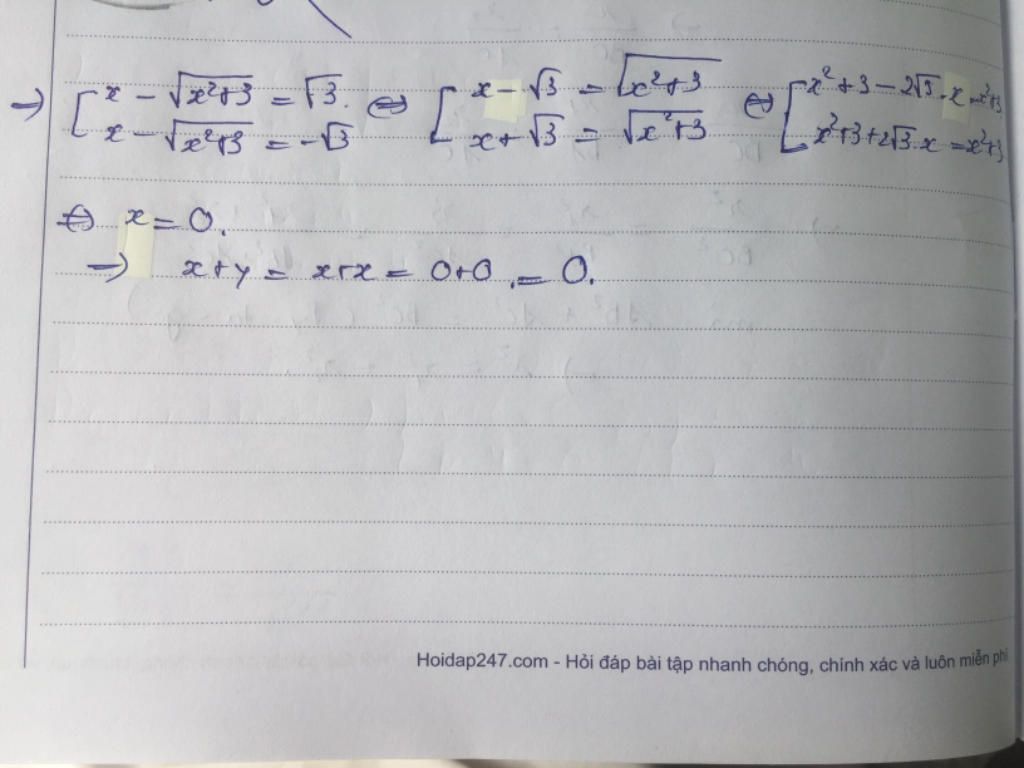 → [ x - √(x²+3) = √3. ⇔ [ x - √3 = √(x²+3) ⇔ [ x²+3 - 2√3.x = x²+3
x - √(x²+3) = -√3 x + √3 = √(x²+3) x²+3+2√3.x = x²+3
⇔ x = 0.
→ x+y = x+x = 0+0 = 0.
Hoidap247.com - Hỏi đáp bài tập nhanh chóng, chính xác và luôn miễn phí